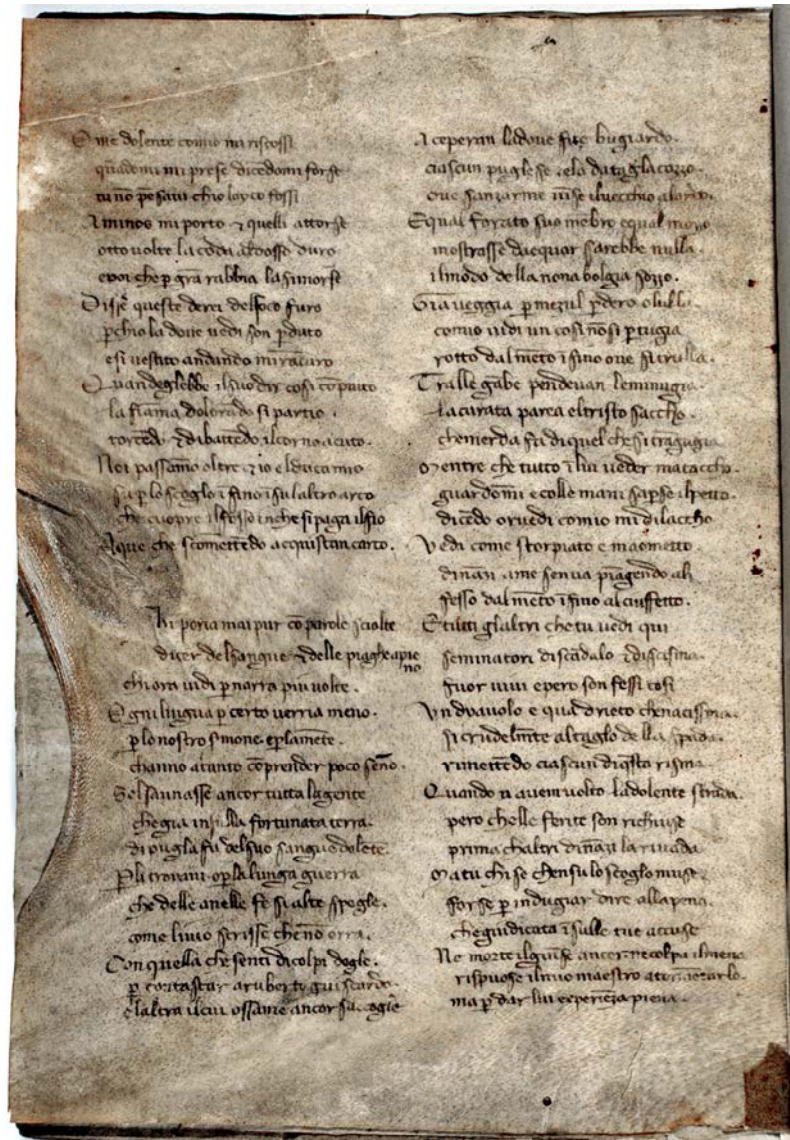 O me dolente como mi riscossi
quādomi mi prese dicēdomi forse
tu nō pēsavi chio loyco fossi
A minos mi porto ⁊ quelli attorse
otto volte la coda al dosso duro
e poi che p grā rabbia la si morse
Disse questi e dei del foco furo
pchio la dove vedi son pduto
e si vestito andando mi rācuro
Quandeglebbe il suo dir cosi cōpiuto
la fiāma dolorādo si partio.
torcēdo ⁊ dibattēdo il corno acuto.
Noi passāmo oltre ⁊ io el duca mio
su p lo scoglo ī fino ī su laltro arco
che cuopre il fosso in che si paga il fio
A que che scomettēdo acquistan carco.
Ki poria mai pur cō parole sciolte
dicer del sangue ⁊ delle piaghe apieno
chi ora vidi p narrar piu volte.
Ogni lingua p certo verria meno.
p lo nostro simone ⁊ p la mēte.
channo a tanto cōprender poco seno.
Sel saunasse ancor tutta la gente
che gia in su la fortunata terra.
di pugla fu del suo sangue dolēte.
P li troiani ⁊ p la lunga guerra
che delle anella fe si alte spogle.
come livio scrisse che nō erra.
Con quella che senti di colpi dogle.
p cōtastar a ruberto guiscardo.
e laltra il cui ossame ancor saccogle
A ceperan la dove fue bugiardo.
ciascun puglese ⁊ la da taglacozzo
ove sanzarme vīse il vecchio alardo.
E qual forato suo mēbro e qual mozo
mostrasse daequar sarebbe nulla.
il modo della nona bolgia sozzo.
Gia veggia p mezul pdere o lulla.
comio vidi un cosi nō si ptugia
rotto dal mēto ī fino ove si trulla.
Tralle gābe pendevan le minugia.
la curata parea el tristo saccho.
che merda fa di quel che si trāgugia
Mentre che tutto ī lui veder mataccho.
guardōmi e colle mani sapse il petto.
dicēdo or vedi comio mi dilaccho
Vedi come storpiato e maometto.
dināzi a me sen va piāgendo ali
fesso dal mēto ī fino al ciuffetto.
E tutti glaltri che tu vedi qui
seminatori di scādalo ⁊ di scisma.
fuor vivi e pero son fessi cosi
Un diavolo e qua drieto che nacissma.
si crudelmēte al taglo della spada.
rimettēdo ciascun di qsta risma.
Quando n avem volto la dolente strada.
pero chelle ferite son richiuse
prima chaltri dināzi li rivada
Ma tu chi se chen su lo scoglo muse.
forse p indugiar dire alla pena.
che giudicata ī sulle tue accuse
Ne morte il giūse ancor ne colpa il mena
rispuose il mio maestro a tormētarlo.
ma p dar lui experiēza piena.